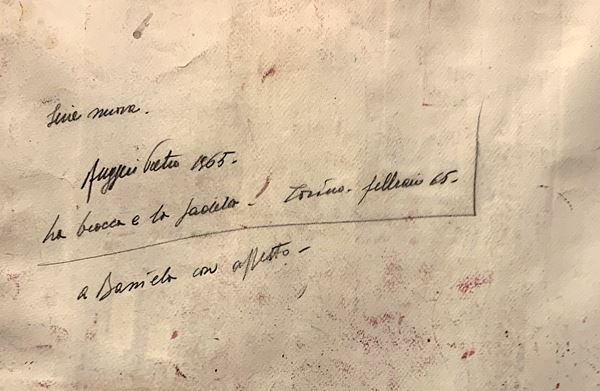 Serie nuova.
Ruggeri Pietro 1965-
La brocca e la padela - Torino. febbraio 65-
a Daniela con affetto -